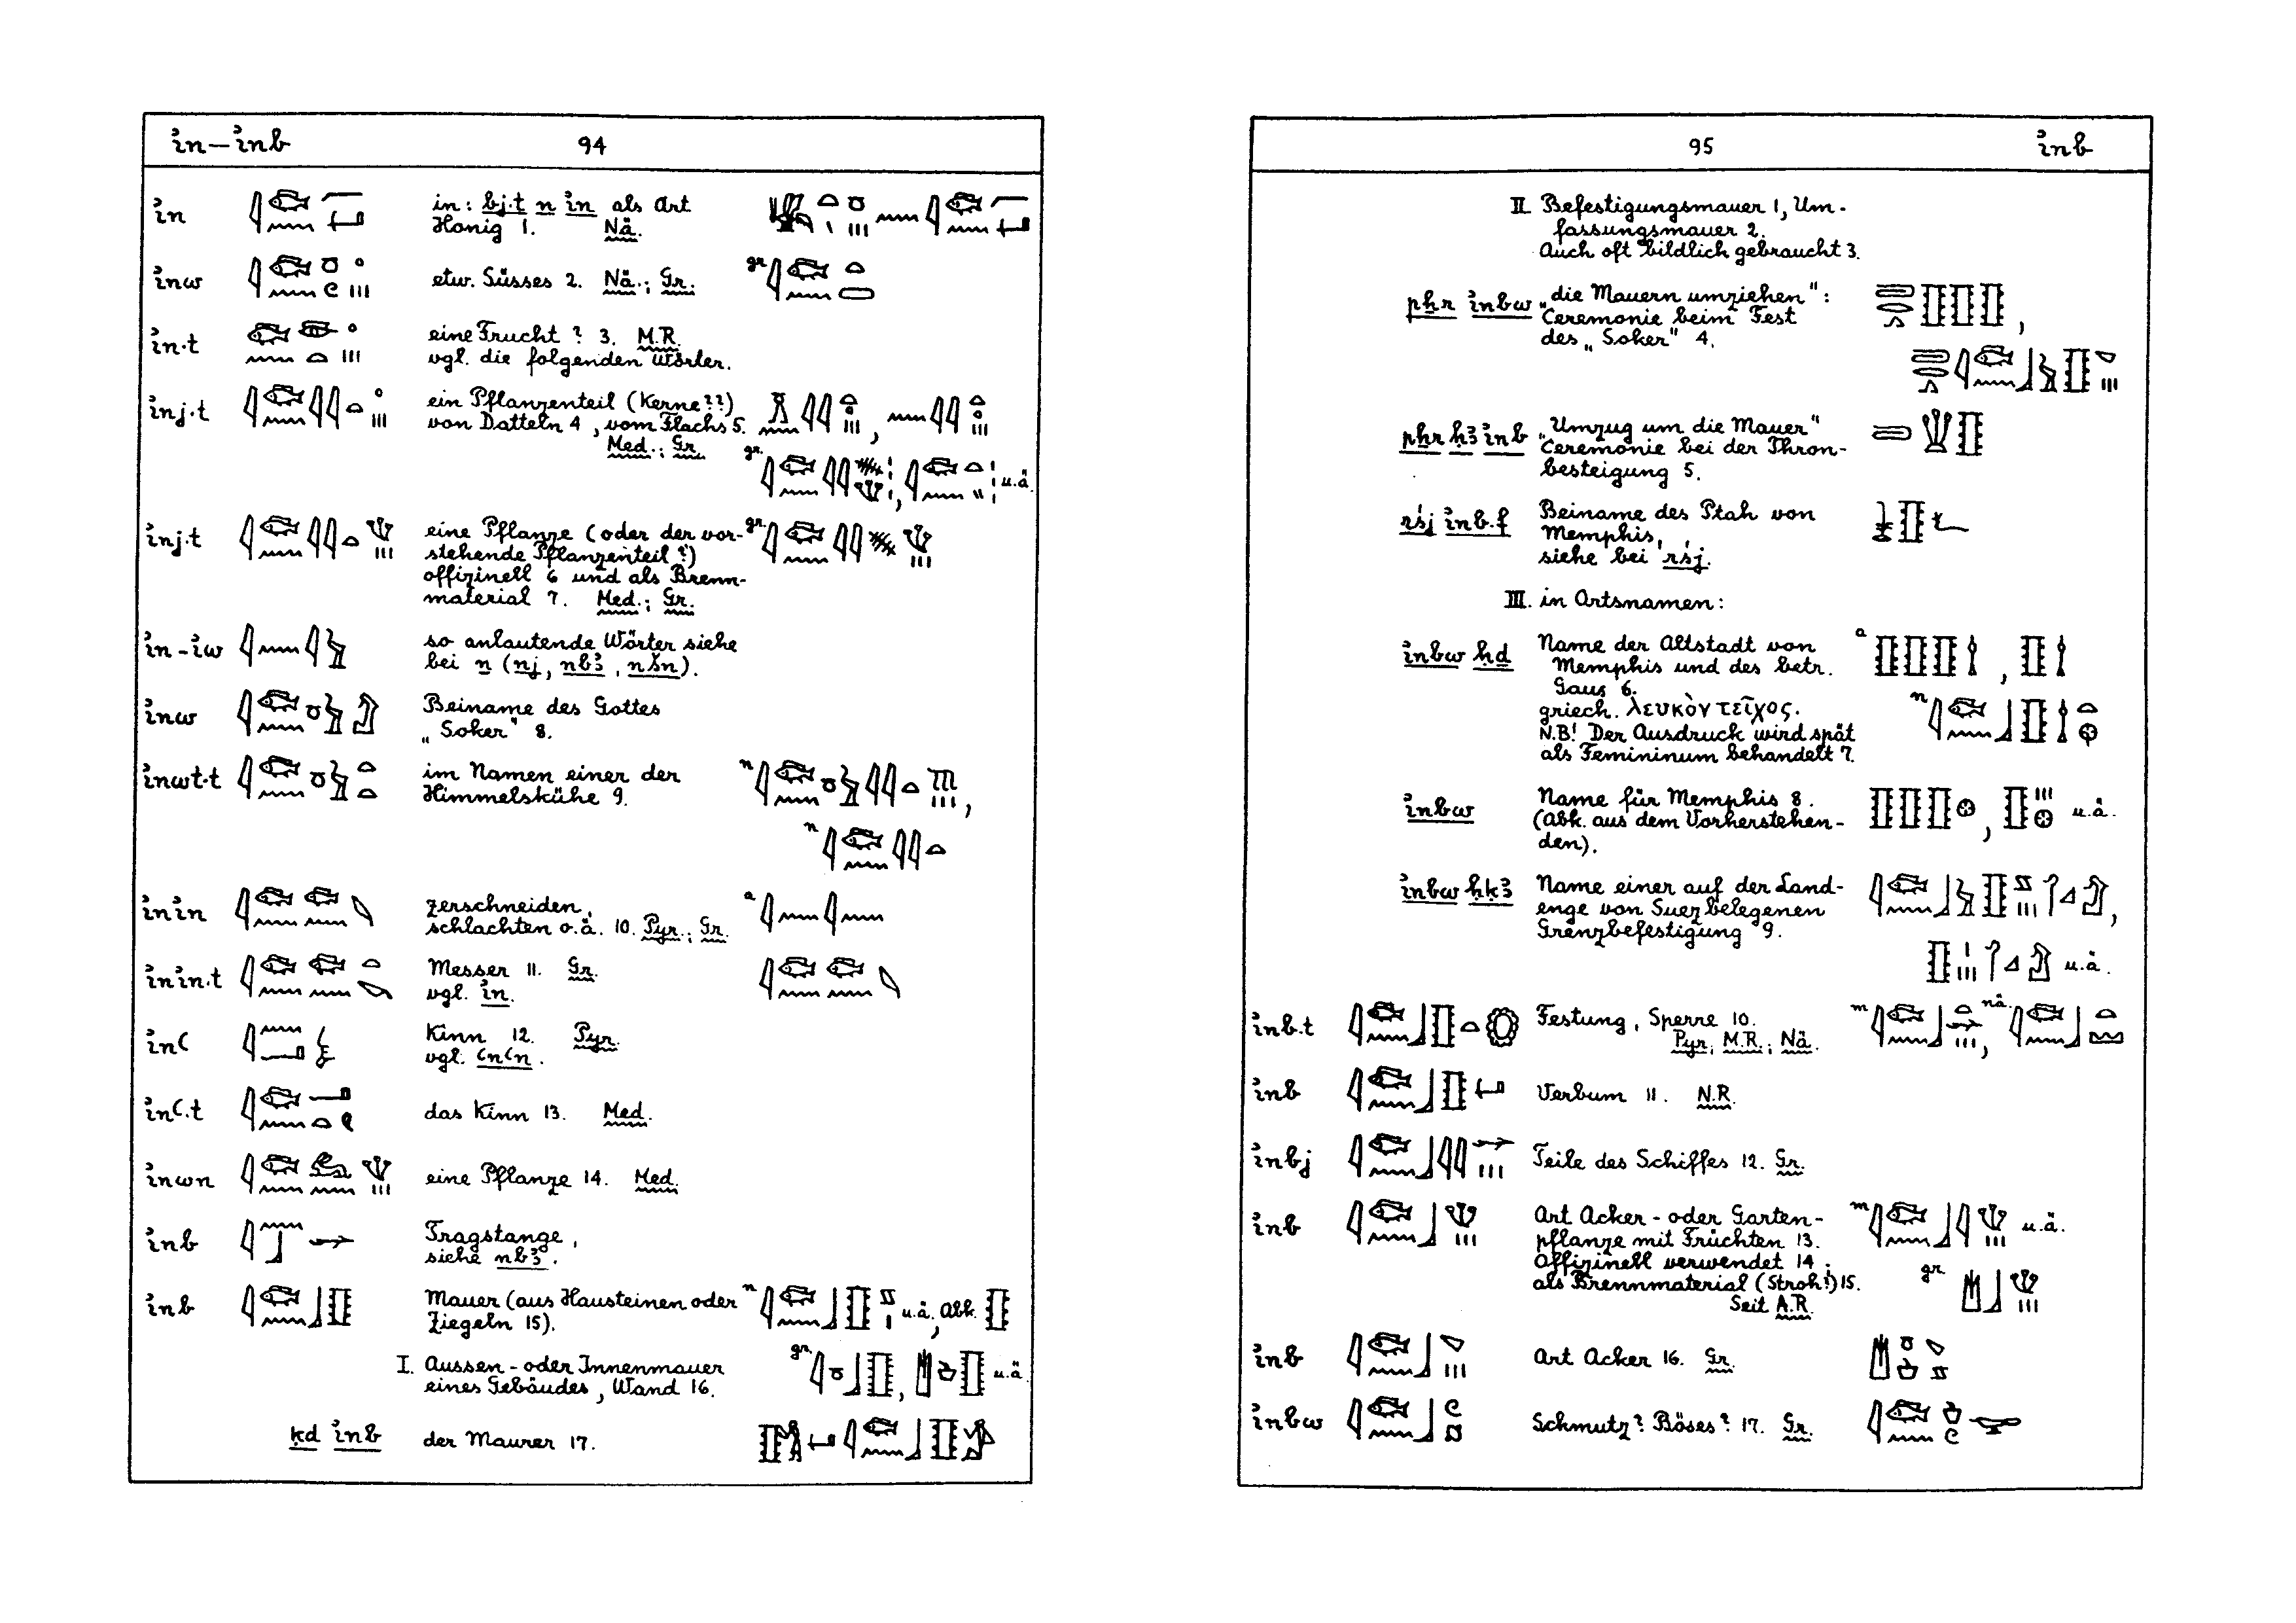 in–inb 94
in in: bj.t n in als Art
Honig 1. Nä.
inw etw. Süsses 2. Nä.; Gr. gr.
in.t eine Frucht? 3. M.R.
vgl. die folgenden Wörter.
inj.t ein Pflanzenteil (Kerne??)
von Datteln 4, vom Flachs 5.
Med.; Gr. gr. u.ä.
inj.t eine Pflanze (oder der vor- gr.
stehende Pflanzenteil?)
offizinell 6 und als Brenn-
material 7. Med.; Gr.
in-iw so anlautende Wörter siehe
bei n (nj, nbꜣ, nšn).
inw Beiname des Gottes
„Soker" 8.
inwt.t im Namen einer der n
Himmelskühe 9.
n
inin zerschneiden, a
schlachten o.ä. 10. Pyr.; Gr.
inin.t Messer 11. Gr.
vgl. in.
inꜥ Kinn 12. Pyr.
vgl. ꜥnꜥn.
inꜥ.t das Kinn 13. Med.
inwn eine Pflanze 14. Med.
inb Tragstange,
siehe nbꜣ.
inb Mauer (aus Hausteinen oder n u.ä., Abk.
Ziegeln 15).
I. Aussen- oder Innenmauer gr. u.ä.
eines Gebäudes, Wand 16.
ḳd inb der Maurer 17.
95 inb
II. Befestigungsmauer 1, Um-
fassungsmauer 2.
Auch oft bildlich gebraucht 3.
pẖr inbw „die Mauern umziehen":
Ceremonie beim Fest
des „Soker" 4.
pẖr ḥꜣ inb „Umzug um die Mauer"
Ceremonie bei der Thron-
besteigung 5.
rśj inb.f Beiname des Ptah von
Memphis,
siehe bei rśj.
III. in Ortsnamen:
inbw ḥḏ Name der Altstadt von a
Memphis und des betr.
Gaus 6. n
griech. λευκὸν τεῖχος.
N.B! Der Ausdruck wird spät
als Femininum behandelt 7.
inbw Name für Memphis 8. u.ä.
(Abk. aus dem Vorherstehen-
den).
inbw ḥḳꜣ Name einer auf der Land-
enge von Suez belegenen
Grenzbefestigung 9.
u.ä.
inb.t Festung, Sperre 10. m nä.
Pyr.; M.R.; Nä.
inb Verbum 11. N.R.
inbj Teile des Schiffes 12. Gr.
inb Art Acker- oder Garten- m u.ä.
pflanze mit Früchten 13.
Offizinell verwendet 14; gr.
als Brennmaterial (Stroh?) 15.
Seit A.R.
inb Art Acker 16. Gr.
inbw Schmutz? Böses? 17. Gr.